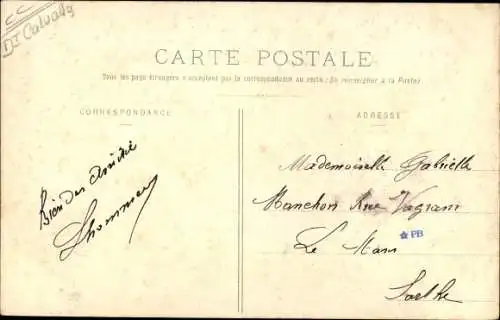 Dt Calvados
CARTE POSTALE
Tous les pays étrangers n'acceptent pas la correspondance au recto (Se renseigner à la Poste)
CORRESPONDANCE
ADRESSE
Bien des amitiés
Lhommeau
Mademoiselle Gabrielle
Manchon Rue Wagram
Le Mans
PB
Sarthe